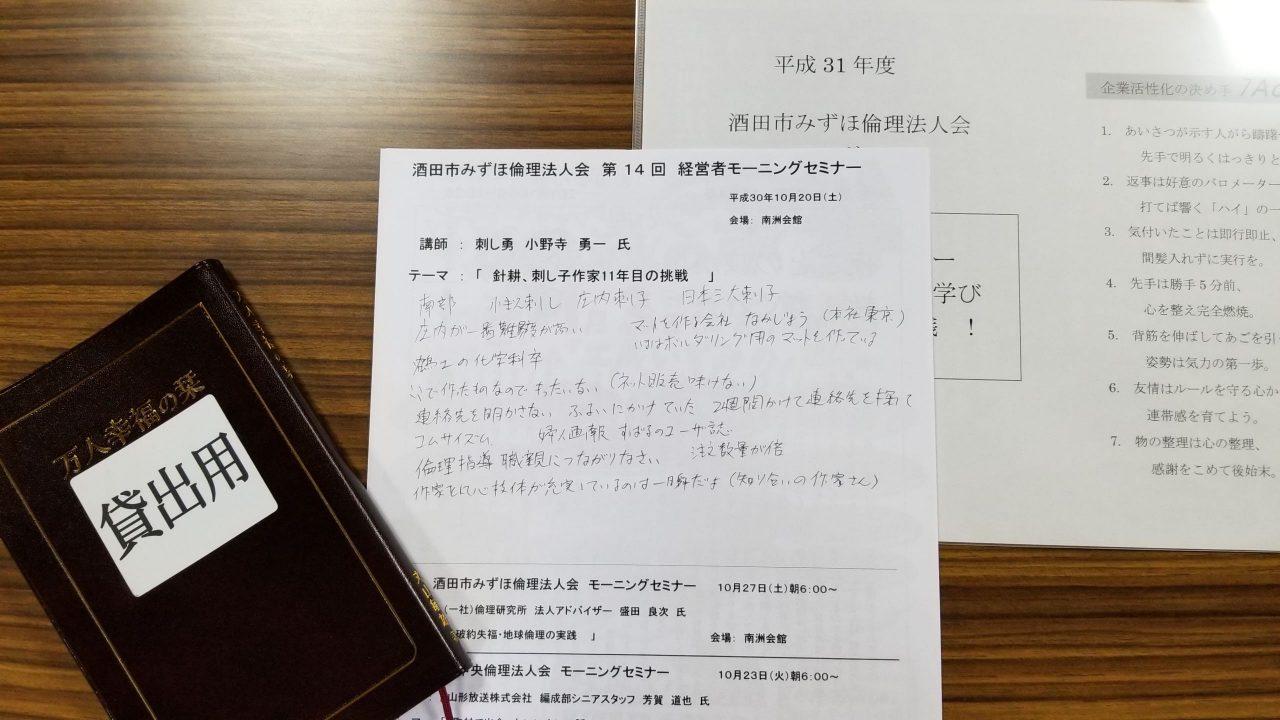 酒田市みずほ倫理法人会 第 14 回 経営者モーニングセミナー
平成30年10月20日(土)
会場: 南洲会館
講師 : 刺し勇 小野寺 勇一 氏
テーマ : 「 針耕、刺し子作家11年目の挑戦 」
南部 小杉刺し 庄内刺子 日本三大刺子
庄内が一番難易度が高い マットを作る会社 なかじょう (本社東京)
ボルダリング用のマットを作っている
鶴工の化学科卒
で作ったものなので もったいない (ネット販売 味けない)
連絡先を明かさない ふるいにかけていた 2週間かけて連絡先を探して
コムサイズム 婦人画報 すばるのユーザ誌
倫理指導 職親につながりなさい 注文数量が倍
作家として心技体が充実しているのは一瞬だよ (知り合いの作家さん)
酒田市みずほ倫理法人会 モーニングセミナー 10月27日(土)朝6:00~
(一社)倫理研究所 法人アドバイザー 盛田 良次 氏
破約失福・地球倫理の実践 」 会場: 南洲会館
央倫理法人会 モーニングセミナー 10月23日(火)朝6:00~
山形放送株式会社 編成部シニアスタッフ 芳賀 道也 氏
万人幸福の栞
貸出用
平成 31 年度
酒田市みずほ倫理法人会
ー
学び
!
企業活性化の決め手
1. あいさつが示す人がら躊躇
先手で明るくはっきりと
2. 返事は好意のバロメーター
打てば響く「ハイ」の一
3. 気付いたことは即行即止、
間髪入れずに実行を。
4. 先手は勝手５分前、
心を整え完全燃焼。
5. 背筋を伸ばしてあごを引
姿勢は気力の第一歩。
6. 友情はルールを守る心か
連帯感を育てよう。
7. 物の整理は心の整理、
感謝をこめて後始末。